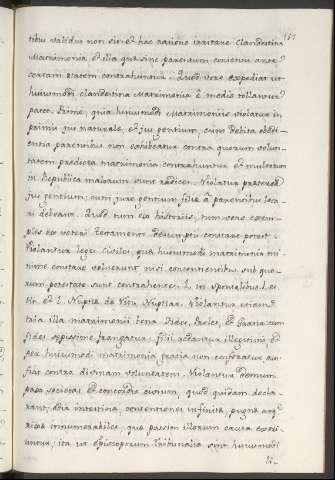 137
tibus validus non sit et hac ratione irritare clandestina
Matrimonia, et illa quæ sine parentum consensu ante
certam ætatem contrahuntur. Quod vero expediat ut
huiusmodi clandestina Matrimonia è medio tollantur
patet. Primo, quia huiusmodi Matrimoniis violatur in
primis jus naturale, et jus gentium, cum debita obedi-
entia parentibus non exhibeatur contra quorum volun-
tatem predicta matrimonia contrahuntur et multorum
in Republica malorum sunt radices. Violatur præterea
jus gentium, cum jure gentium filiæ à parentibus loca-
ri debeant. Quod tum ex historiis, tum vero exem-
plis ex veteri testamento desumptis constare potest.
Violantur leges civiles, quæ huiusmodi matrimonia mi-
nime constare voluerunt nisi consentientibus sub quo-
rum potestate sunt contrahentes. L. in sponsalibus L.
et L. Nuptiæ de ritu Nuptiar. Violantur etiam
tria illa matrimonii bona, fides, Proles, et
fides sæpissime frangatur: filii reddantur illegitimi et
per huiusmodi matrimonia gratia non conferatur,
fiat contra divinam voluntatem. Violantur demum
pax societas et concordia civium, quod quidam decla-
rant, odia intestina, contentiones infinitæ, pugnæ
innumerabiles, quæ passim illorum causa exori-
untur, ita ut Episcoporum Tribunalia sint huiusmodi
li-